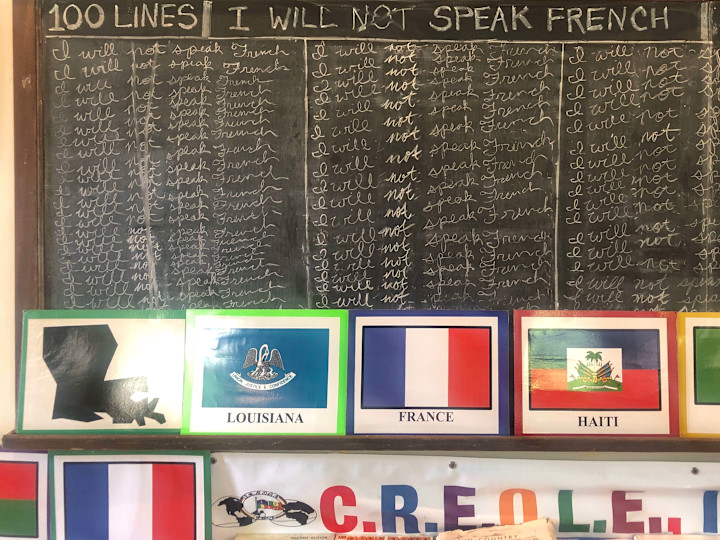 100 LINES I WILL NOT SPEAK FRENCH
I will not speak French
I will not speak French
I will not speak French
I will not speak French
I will not speak French
I will not speak French
I will not speak French
I will not speak French
I will not speak French
I will not speak French
I will not speak French
I will not speak French
I will not speak French
I will not speak French
I will not speak French
I will not speak French
I will not speak French
I will not speak French
I will not speak French
I will not speak French
I will not speak French
I will not speak French
I will not speak French
I will not speak French
I will not speak French
I will not speak French
I will not speak French
I will not speak French
I will not speak French
I will not speak French
I will not speak French
I will not speak French
I will not speak French
I will not
I will not
I will not
I will not
I will not
I will not
I will not
I will not
I will not
I will not
I will not
I will not
I will not speak
I will not speak
UNION JUSTICE & CONFIDENCE
LOUISIANA
FRANCE
HAITI
C.R.E.O.L.E.,
COUNTRY